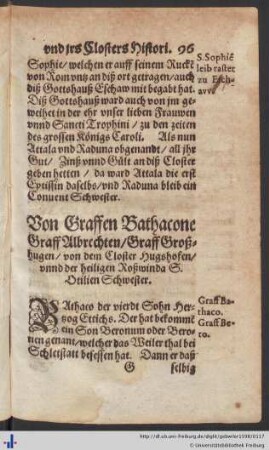 vnd jrs Closters Histori. 96
Sophie/ welchen er auff seinem Rucke
von Rom vntz an diß ort getragen/ auch
diß Gottshauß Eschaw mit begabt hat.
Diß Gottshauß ward auch von jm ge-
weihet in der ehr vnser lieben Frauwen
vnnd Sancti Trophini/ zu den zeiten
des grossen Königs Caroli. Als nun
Attala vnd Raduna obgenandt/ all jhr
Gut/ Zinß vnnd Gült an diß Closter
geben hetten/ da ward Attala die erst
Eptissin daselbs/ vnd Raduna bleib ein
Conuent Schwester.
S. Sophiê
leib rastet
zu Esch-
avv
Von Graffen Bathacone
Graff Albrechten/ Graff Groß-
hugen/ von dem Closter Hugshofen/
vnnd der heiligen Roßwinda S.
Otilien Schwester.
BAthaco der vierdt Sohn Her-
tzog Etichs. Der hat bekommē
ein Son Beronum oder Bero-
nen genant/ welcher das Weiler thal bei
Schletstatt besessen hat. Dann er daß
Graff Ba-
thaco.
Graff Be-
ro.
G selbig
http://dl.ub.uni-freiburg.de/diglit/gebwiler1598/0117
© Universitätsbibliothek Freiburg